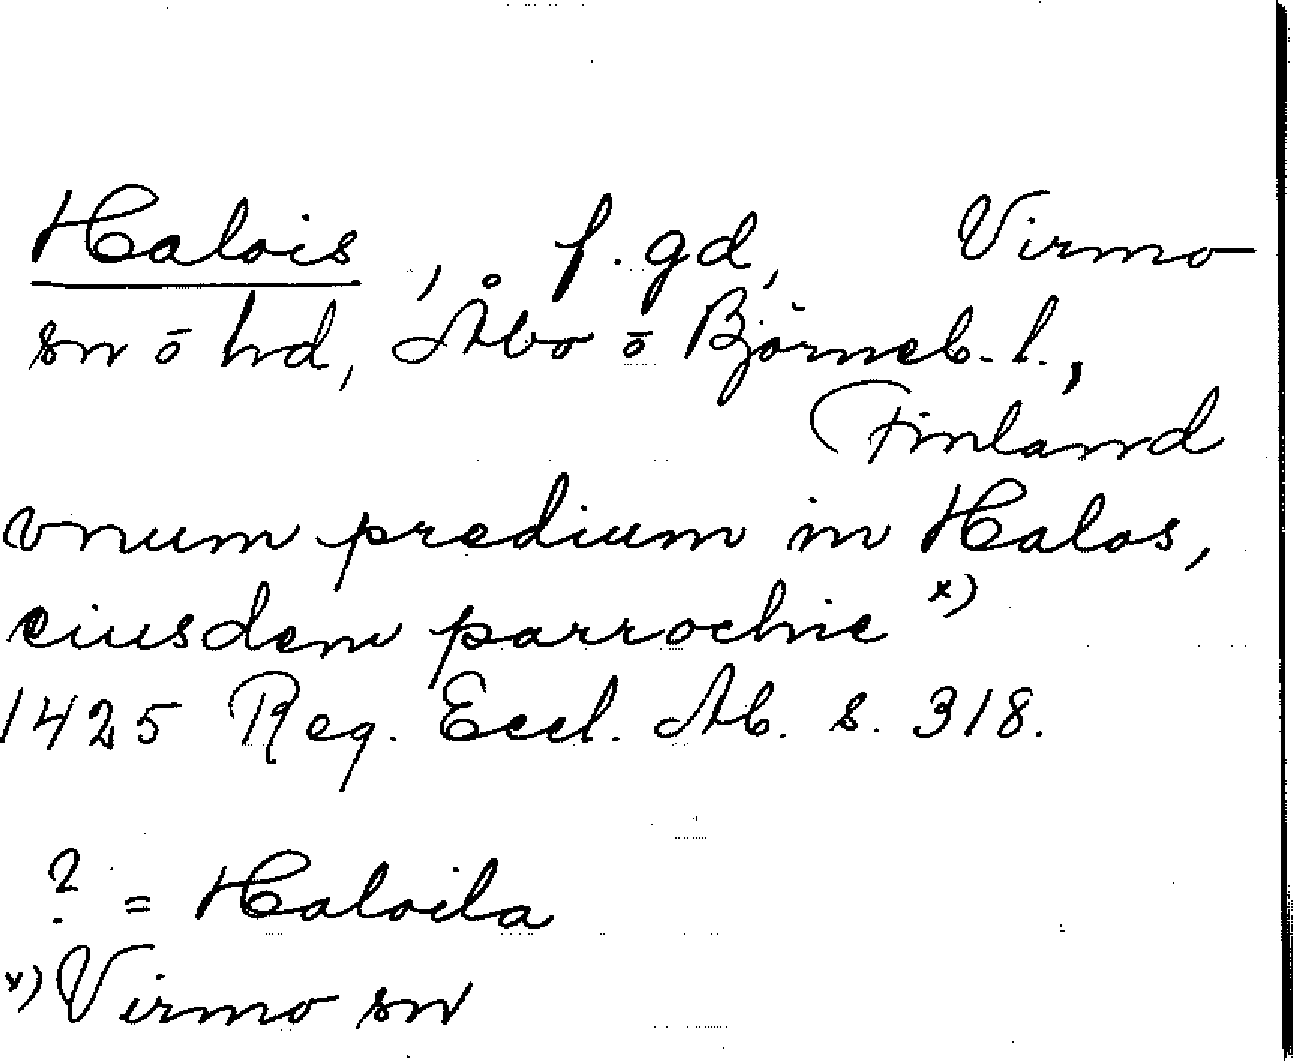 Halois, f.gd, Virmo
sn ō hd, Åbo ō Björneb. l.,
Finland
vnum predium in Halos,
eiusdem parrochie x)
1425 Reg. Eccl. Ab. s. 318.
? = Haloila
x) Virmo sn